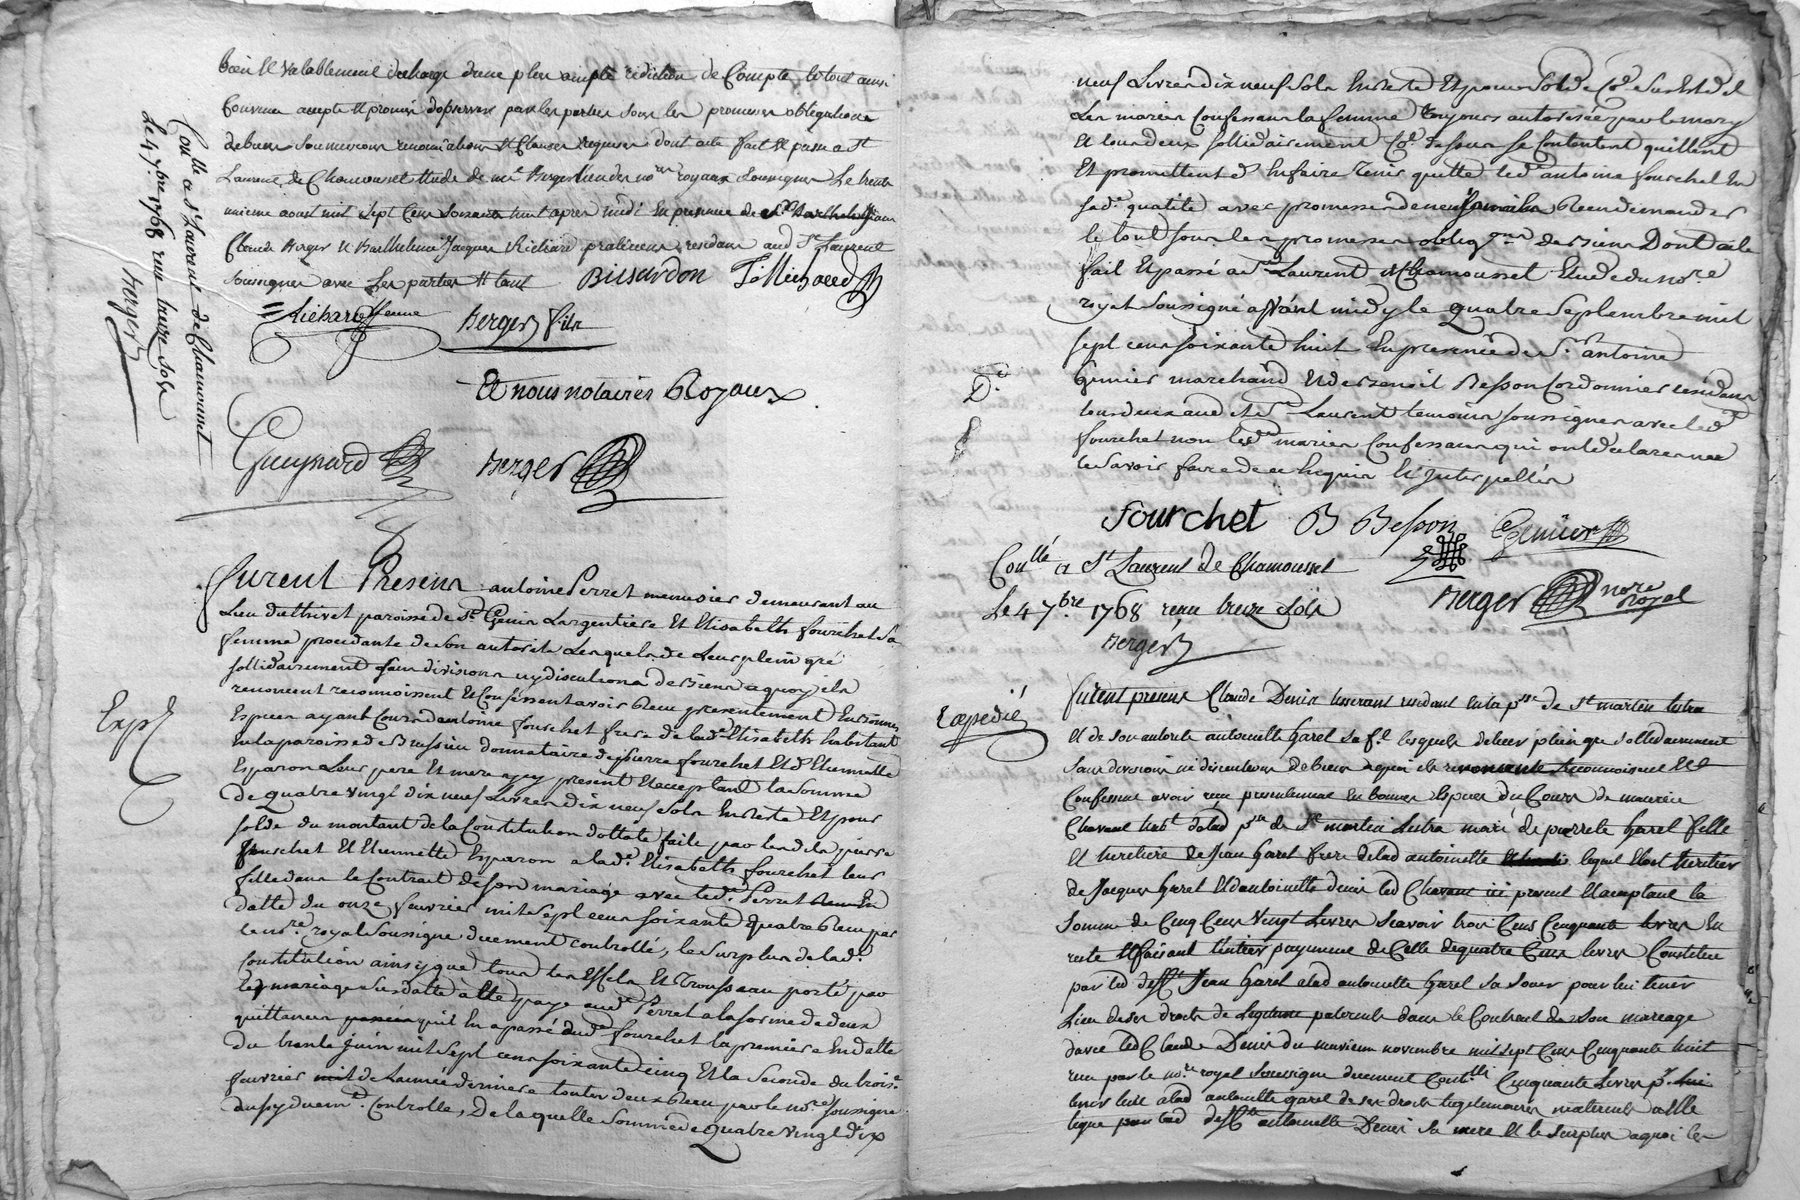 bien et valablement decharge dune plus ample reddition de Compte le tout ainsi
Convenu accepte et promis dobserver par les parties sous les promesses obligations
de biens Soumissions renonciations et Clauses requises dont acte fait et passe a St
Laurent de Chamousset etude de me Berger lun des nores royaux Soussignes Le trente
unieme aoust mil Sept Cens Soixante huit apres midi En presence de
Claude Berger et Barthelemi Jacques Richard praticiens residans aud St Laurent
soussignes avec Les parties et tant
Bissardon
Richard
Berger fils
Et nous notaires Royaux
Gueynard
Berger
Conlle a St Laurent de Chamousset
Le 4 7bre 1768 reçu treize sols
Berger
Expé
Furent Presens antoine Perret menuisier demeurant au
Lieu du thivet paroisse de St Genis Largentiere Et Elisabeth fourchet Sa
femme procedante de Son autorité Lesquels de Leur plein gré
sollidairement Sans divisions ny discutions de Biens a quoy ils
renoncent reconnoissent et Confessent avoir Reçu presentement En bonnes
Especes ayant Cours dantoine fourchet frere de lade Elisabeth habitant
En la paroisse de Brussieu donnataire de pierre fourchet Et de Etiennette
Esparon Leurs pere Et mere icy present Et acceptant la Somme
de quatre vingt dix neuf Livres dix neuf Sols En reste Et pour
solde du montant de la Constitution dottale faite par lesd pierre
fourchet Et Etiennette Esparon a lade Elisabeth fourchet leur
fille dans le Contrat de son mariage avec led Perret
datte du onze fevrier mil Sept cens soixante quatre Reçu par
le nore royal Soussigne duement controllé, le Surplus de lade
Constitution ainsy que tous les Effets Et Trousseau porté par
led mariage Susdatté a été payé aud Perret a la forme de deux
quittances quil En a passé aud fourchet la premiere En datte
du trente Juin mil Sept cens soixante cinq Et la Seconde du trois
fevrier de Lannée derniere toutes deux Reçu par le nore Soussigne
aussy duemt Controllé, De laquelle Somme de Quatre Vingt dix
neuf Livres dix neuf Sols En reste Et pour Solde Ce Susd
Les maries Confessans la femme toujours autorisée par le mary
Et tous deux sollidairement Ce dessus se Contentent quittent
Et promettent En faire Tenir quitte led antoine fourchet En
sade qualité avec promesse de ne Jamais Rien demander
le tout sous les promesses obligons de Biens Dont acte
fait Et passé a St Laurent de Chamousset Etude du nore
royal Soussigné avant midy le quatre Septembre mil
sept cens soixante huit En presence de Sr antoine
Genier marchand Et de Benoit Besson Cordonnier residans
tous deux aud St Laurent temoins soussignes avec led
fourchet non lesd maries Confessans qui ont declaré ne
le Savoir faire de ce Enquis Et Interpellés
Dt
fourchet B Besson Genier
Conllé a St Laurent de Chamousset
Le 4 7bre 1768 reçu treize Sols
Berger
Berger nore royal
Expedié
Furent presens Claude Denis tisserant residant en la psse de St martin lestra
Et de son autorité antoinette Garel sa fe lesquels de leur plein gre sollidairement
sans division ni discution de biens a quoi ils renoncent reconnoissent Et
Confessent avoir reçu presentement en bonnes Especes du Cours de maurice
Chavant habt de lad psse de St martin Lestra mari de pierrette Garel fille
Et heritiere de Jean Garel frere de lad antoinette lequel Etoit heritier
de Jacques Garel Et dantoinette denis led Chavant ici present Et acceptant la
Somme de Cinq Cens Vingt Livres Scavoir trois Cens Cinquante livres En
reste Et faisant l'entier payement de Celle de quatre Cens livres Constituee
par led defft Jean Garel a lad antoinette Garel sa soeur pour lui tenir
Lieu de ses droits de Legitime paternels dans le Contrat de Son mariage
davec led Claude Denis du novembre mil sept Cens Cinquante huit
reçu par le nore royal Soussigne duement Contllé Cinquante Livres pr lui
tenir lieu a lad antoinette garel de ses droits legitimaires maternels a elle
legué par lad defte antoinette Denis sa mere Et le surplus a quoi les